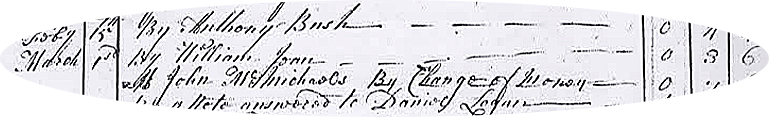 By Anthony Bush 0 4
March 1st By William Joan 0 3 6
John McMichaels By Change of Money 0
a Note answered to Daniel Logan